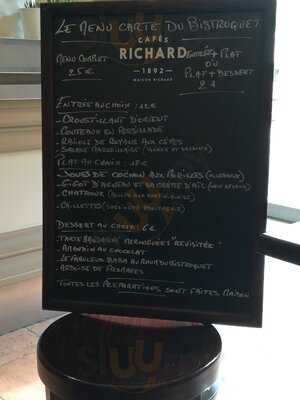 LE MENU CARTE DU BISTROQUET
CAFÉS
RICHARD
1892
MAISON RICHARD
MENU COMPLET
25€
ENTRÉE + PLAT
OU
PLAT + DESSERT
ENTRÉE AU CHOIX : 12€
- CROUSTILLANT D'
- COUTEAUX EN PERSILLADE
- RAVIOLE DE ROYANS AUX CÈPES
- SALADE MARSEILLAISE
PLAT AU CHOIX :
- JOUES DE COCHON AUX
- GIGOT D'AGNEAU ET SA CRÈTE D'AIL
- CHATROUX
- CAILLETTE
DESSERT AU CHOIX : 6€
- TARTE MERINGUÉE "REVISITÉE"
- AMANDIN AU CHOCOLAT
- LE FABULEUX BABA AU RHUM DU BISTROQUET
- ARDOISE DE FROMAGES
TOUTES LES PRÉPARATIONS SONT FAITES MAISON